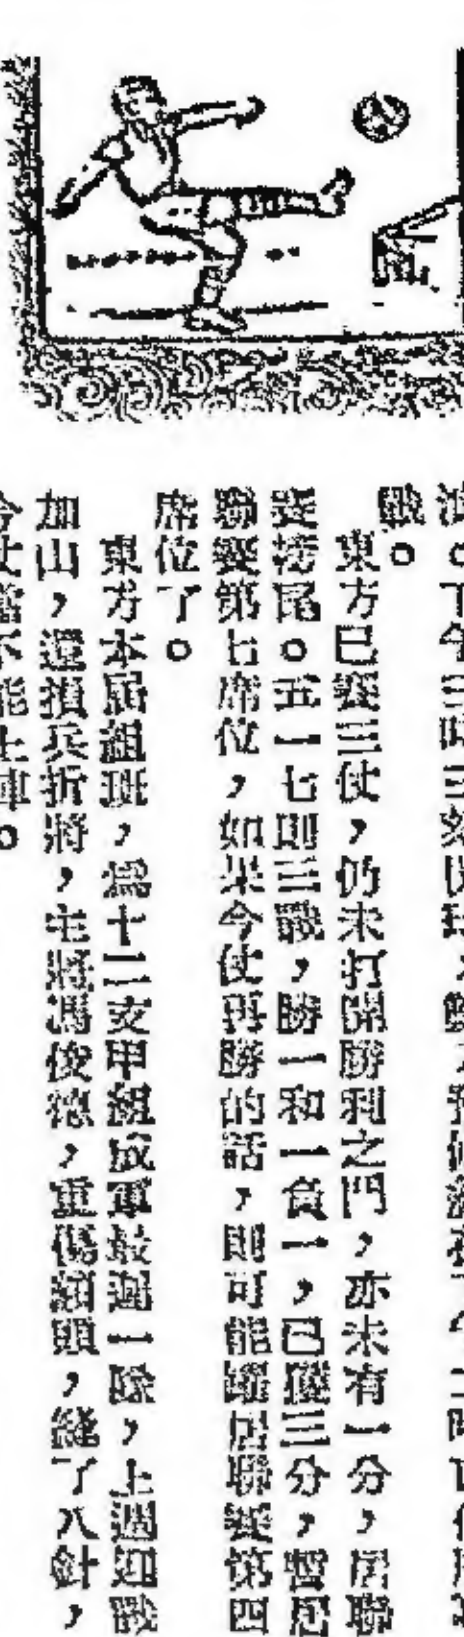 戰。
東方已賽三仗，仍未打開勝利之門，亦未有一分，居聯
賽榜尾。五一七則三戰，勝一和一負一，已獲三分，暫居
聯賽第七席位，如果今仗再勝的話，則可能躍居聯賽第四
席位了。
東方本屆組班，為十二支甲組成軍最遲一隊，上週迎戰
加山，還損兵折將，主將馮俊德，重傷額頭，縫了八針，
今仗當不能上陣。